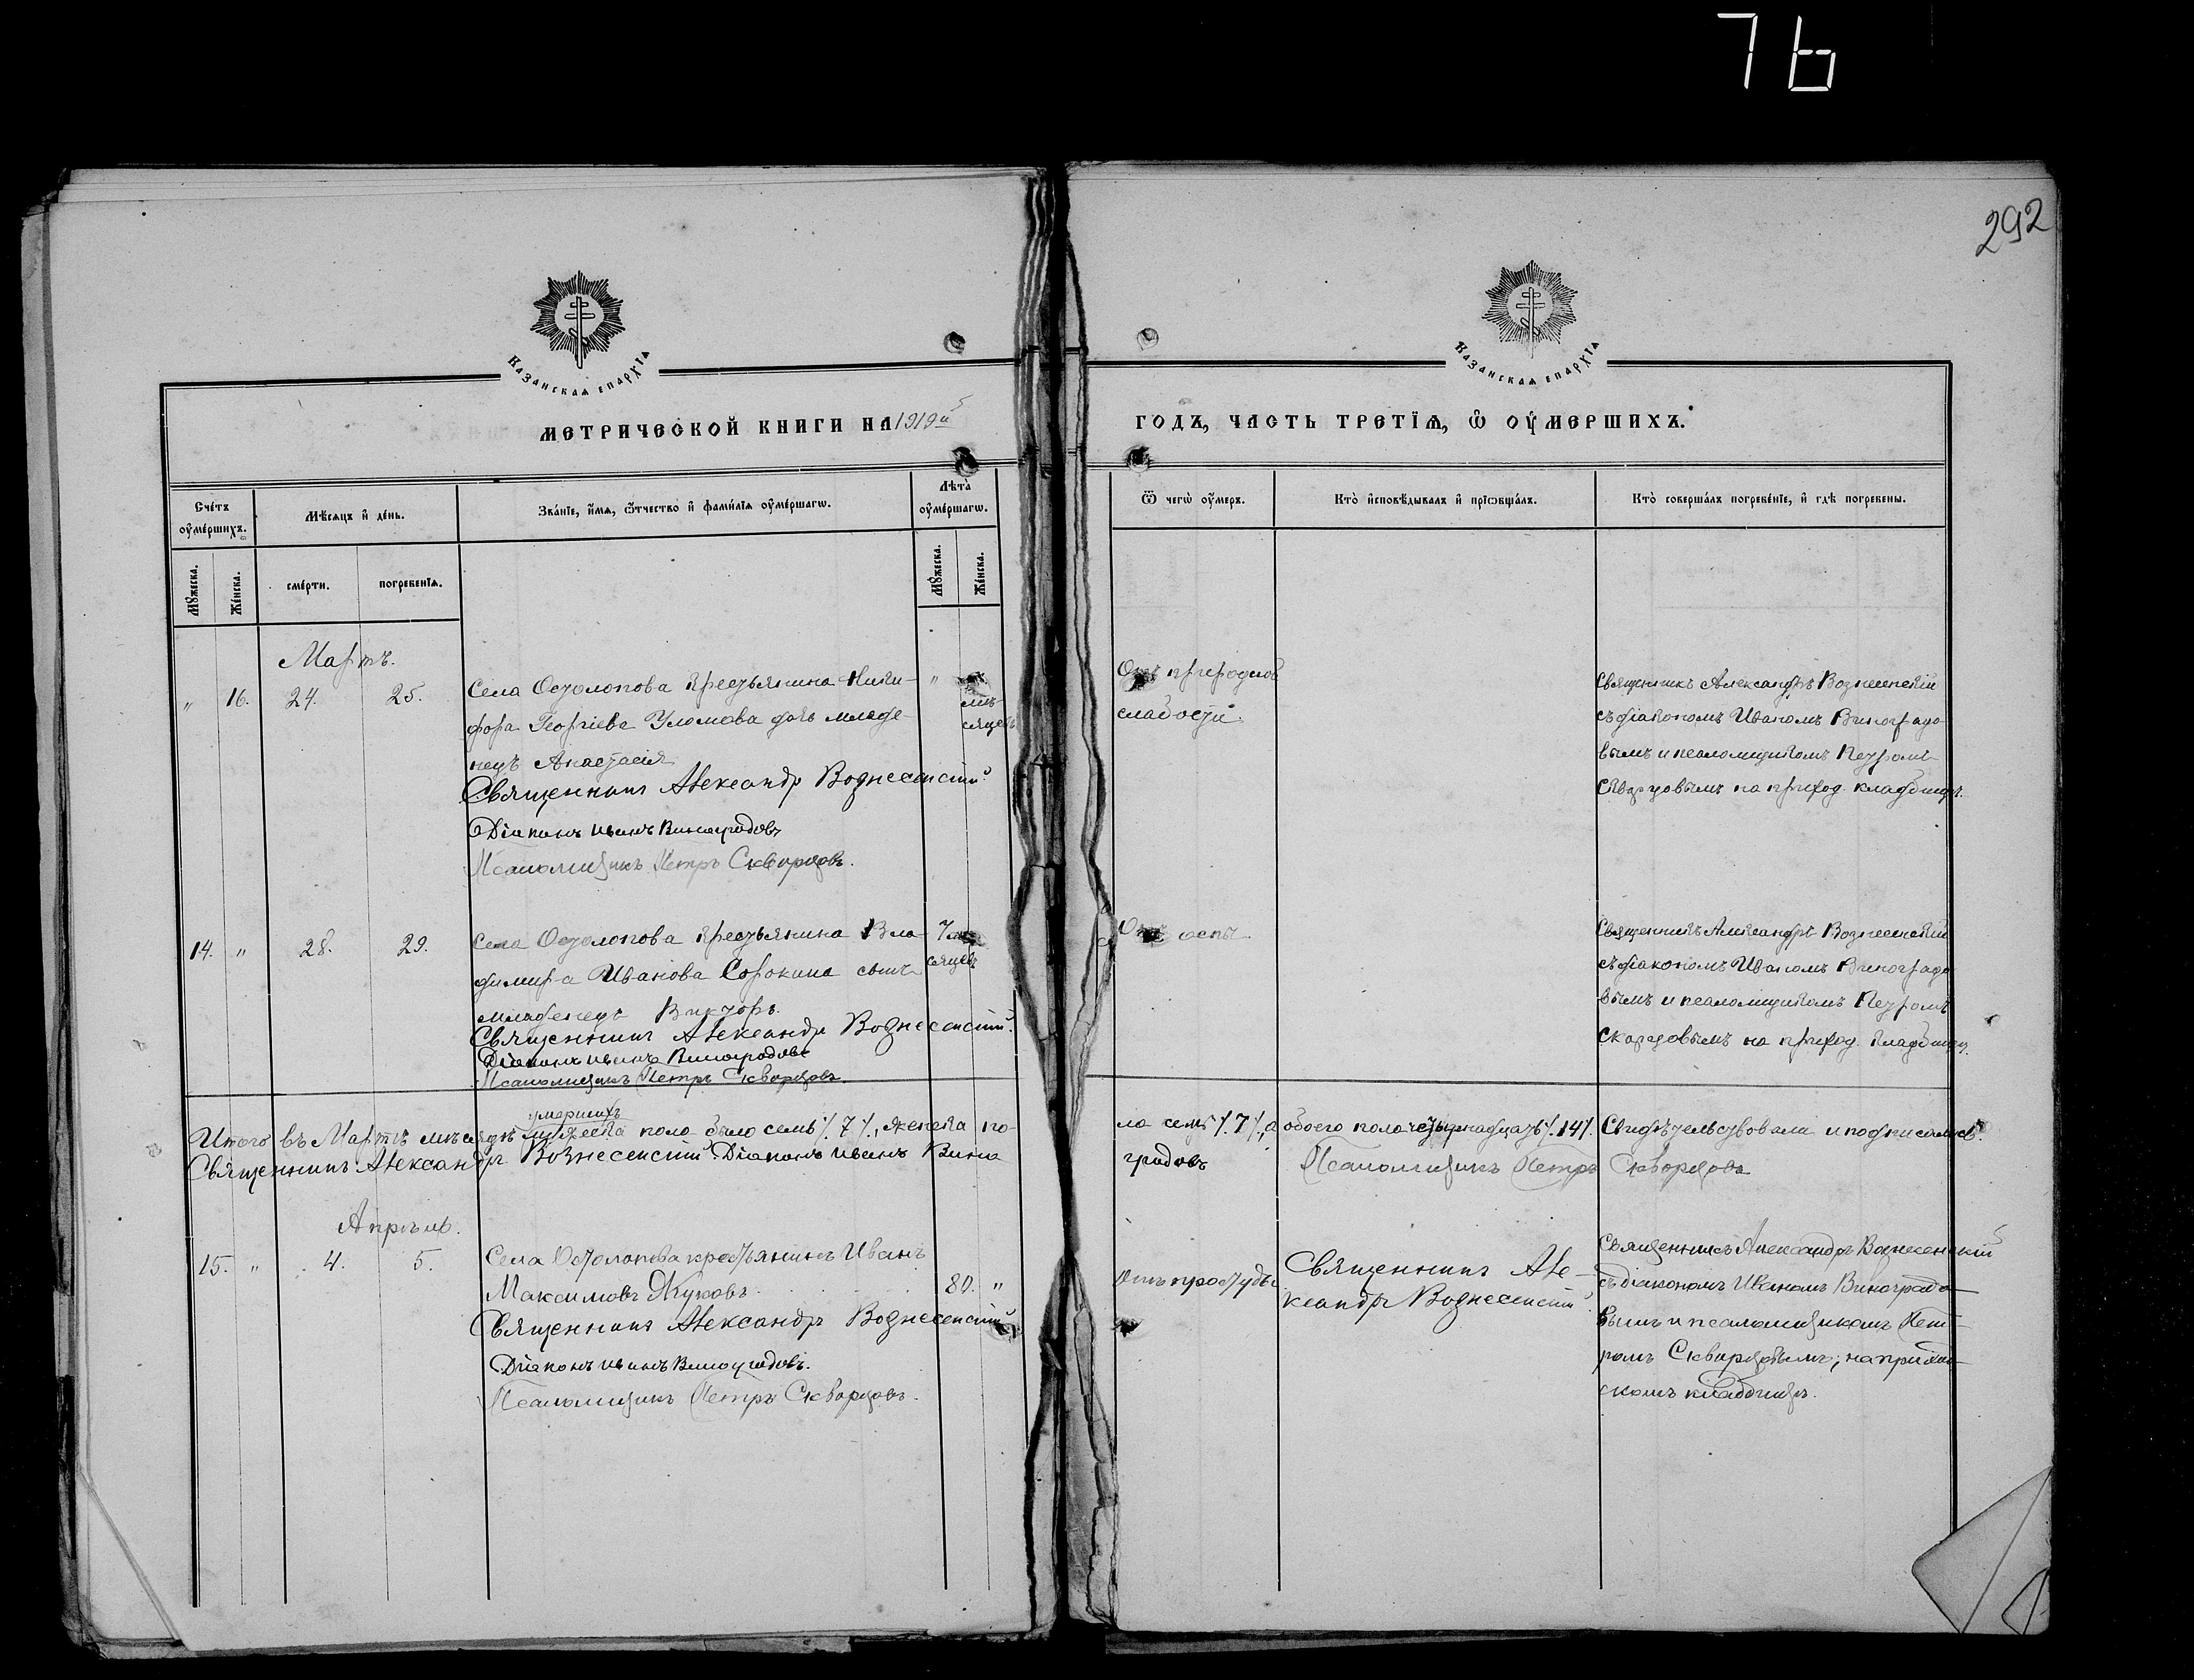 76
292
Казанская епархїѧ
Казанская епархїѧ
МЕТРИЧЕСКОЙ КНИГИ НА 1919й
ГОДЪ, ЧАСТЬ ТРЕТЇѦ, Ѽ ОУМЕРШИХЪ.
Счетъ оумершихъ.
Мѣсѧцъ и день.
Званїе, имѧ, ѿчество и фамилїѧ оумершагѡ.
Лѣта оумершагѡ.
Ѿ чегѡ оумеръ.
Кто исповѣдывалъ и прїѡбщалъ.
Кто совершалъ погребенїе, и гдѣ погребены.
Мужеска.
Женска.
смерти.
погребенїѧ.
Мужеска.
Женска.
Мартъ.
" 16. 24. 25.
Села Остолопова крестьянина Ники-
фора Георгіева Уломова дочь младе-
нецъ Анастасія
"
мѣ-
сяцевъ
Священникъ Александръ Вознесенскій.
Діаконъ Иванъ Виноградовъ
Псаломщикъ Петръ Скворцовъ.
Отъ природной
слабости.
Священникъ Александръ Вознесенскій
съ діакономъ Иваномъ Виноградо-
вымъ и псаломщикомъ Петромъ
Скворцовымъ на приход. кладбищѣ.
14. " 28. 29.
Села Остолопова крестьянина Вла-
димира Иванова Сорокина сынъ
младенецъ Викторъ.
7 мѣ
сяцевъ
Священникъ Александръ Вознесенскій.
Діаконъ Иванъ Виноградовъ
Псаломщикъ Петръ Скворцовъ.
Отъ оспы
Священникъ Александръ Вознесенскій
съ діакономъ Иваномъ Виноградо
вымъ и псаломщикомъ Петромъ
Скорцовымъ на приход. кладбищѣ.
умершихъ
Итого въ Мартѣ мѣсяцѣ мужеска пола было семь /.7/., женска по-
ла семь /.7/., а обоего пола четырнадцать /.14/. Свидѣтельствовали и подписались:
Священникъ Александръ Вознесенскій. Діаконъ Иванъ Вино
градовъ Псаломщикъ Петръ Скворцовъ
Апрѣль.
15. " 4. 5.
Села Остолопова крестьянинъ Иванъ
Максимовъ Жуковъ.
80. "
Священникъ Александръ Вознесенскій
Діаконъ Иванъ Виноградовъ.
Псаломщикъ Петръ Скворцовъ.
Отъ простуды
Священникъ Але-
ксандръ Вознесенскій.
Священникъ Александръ Вознесенскій
съ діакономъ Иваномъ Виноградо-
вымъ и псаломщикомъ Пет-
ромъ Скворцовымъ; на приход-
скомъ кладбищѣ.